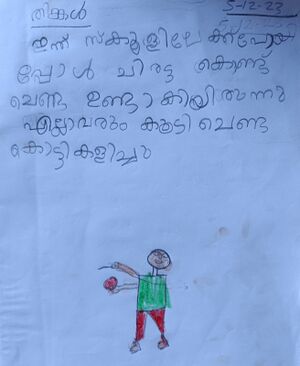 തിങ്കൾ 5-12-23
ഇന്ന് സ്കൂളിലേക്ക് പോയ
പ്പോൾ ചിരട്ട കൊണ്ട്
ചെണ്ട ഉണ്ടാക്കിയിരുന്നു
എല്ലാവരും കൂടി ചെണ്ട
കൊട്ടി കളിച്ചു